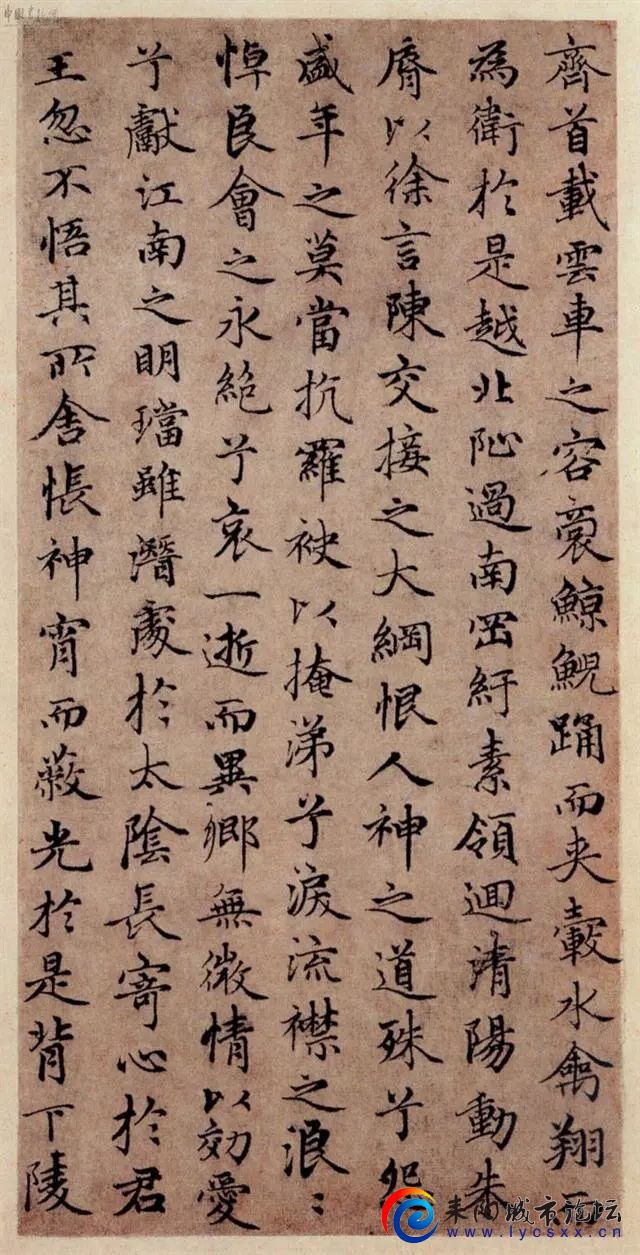 齊首載雲車之容裔鯨鯢踊而夾轂水禽翔而
為衛於是越北沚過南岡紆素領迴清陽動朱
脣以徐言陳交接之大綱恨人神之道殊兮怨
盛年之莫當抗羅袂以掩涕兮淚流襟之浪〻
悼良會之永絕兮哀一逝而異鄉無微情以効愛
兮獻江南之明璫雖潛處於太陰長寄心於君
王忽不悟其所舍悵神宵而蔽光於是背下陵
耒阳城市论坛
www.lycsxx.cn